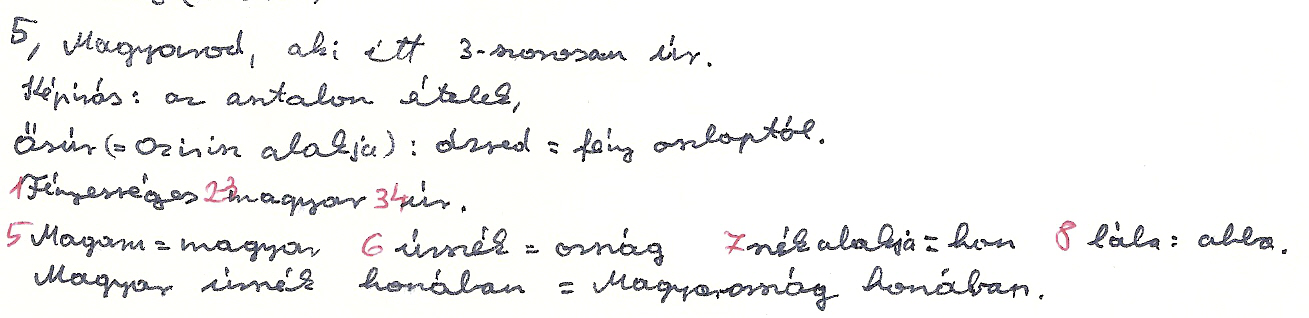 5, Magyarod, aki itt 3-szorosan úr.
Képírás: az asztalon ételek,
Ősúr (= Ozirisz alakja): dzsed = fény oszloptól.
1 Fényességes 2 3 magyar 3 4 úr.
5 Magam = magyar 6 úrszék = ország 7 szék alakja = hon 8 lába: abba.
Magyar úrszék honában = Magyarország honában.